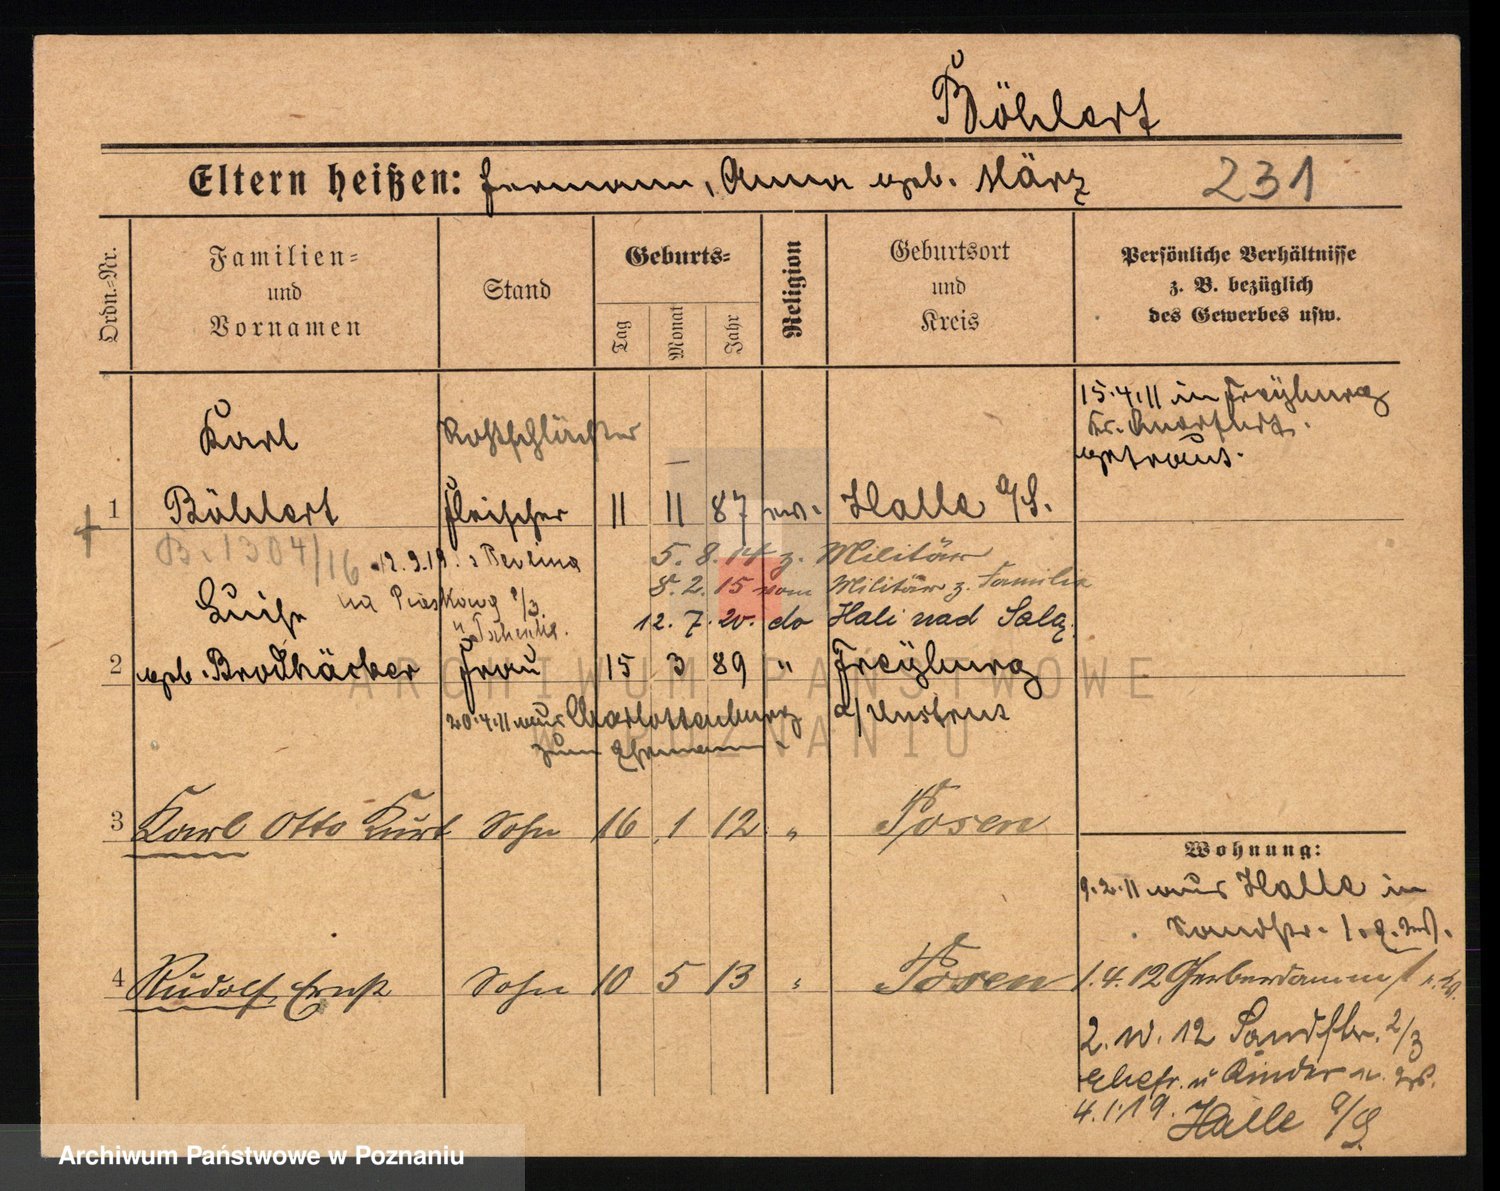 Böhlert
Eltern heißen: Hermann, Anna geb. März 231
Ordn.-Nr.
Familien- und Vornamen
Stand
Geburts-
Tag
Monat
Jahr
Religion
Geburtsort und Kreis
Persönliche Verhältnisse z. B. bezüglich des Gewerbes usw.
15.4.11 in Freyburg
Kr. Querfurt.
getraut.
Karl Roßschlächter
1 Böhlert Fleischer 11 11 87 ev. Halle a/S.
B. 1304/16
5. 8. 14 z. Militär
8. 2. 15 vom Militär z. Familie
12. 7. 20. do Hali nad Salą.
Luise
2 geb. Brodhäcker Frau 15 3 89 " Freyburg
a/Unstrut
20.4.11 aus Charlottenburg
zum Ehemann.
3 Karl Otto Kurt Sohn 16 1 12 " Posen
4 Rudolf Ernst Sohn 10 5 13 " Posen
Wohnung:
9.2.11 aus Halle in
Sandstr. 1.
1.4.12 Gerberdamm 1
2. 10. 12 Sandstr. 2/3
Ehefr. u Kinder n.
4.1.19. Halle a/S
ARCHIWUM PAŃSTWOWE
W POZNANIU
Archiwum Państwowe w Poznaniu